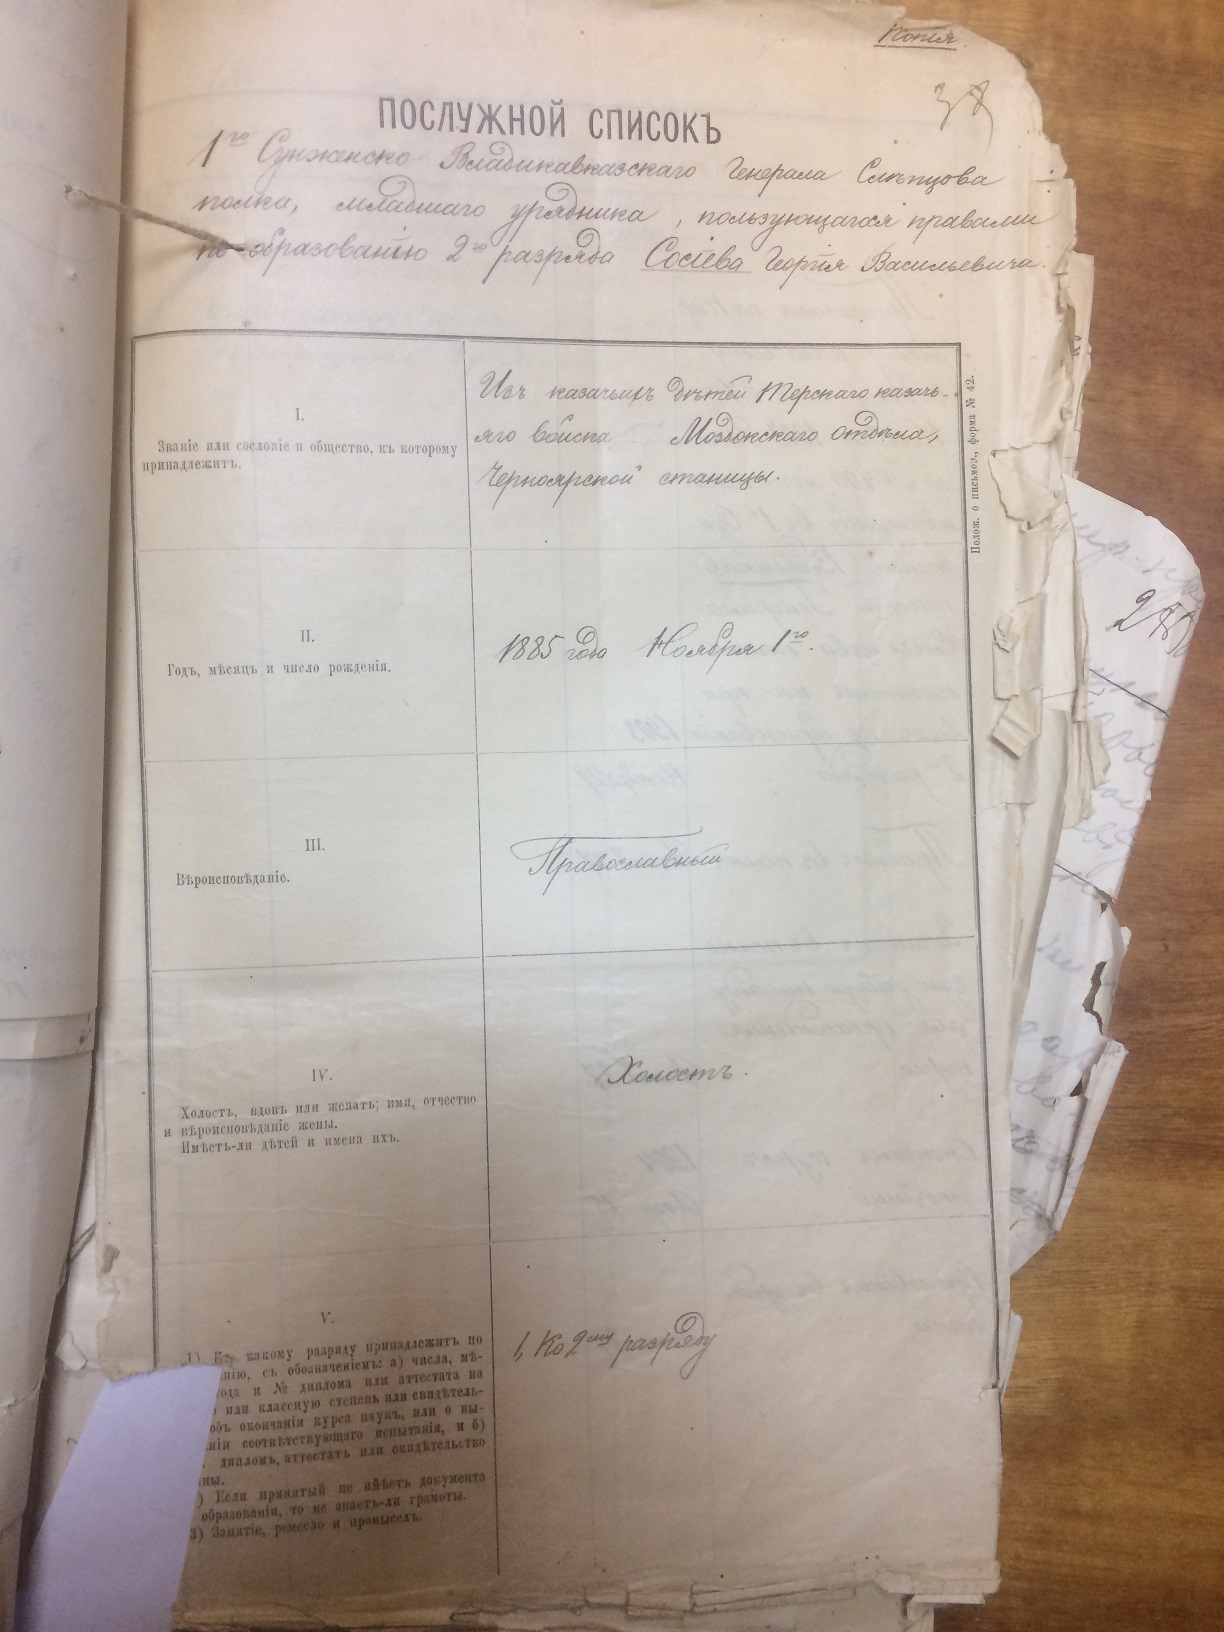 Копія.
38
ПОСЛУЖНОЙ СПИСОКЪ
1го Сунженско-Владикавказскаго Генерала Слѣпцова
полка, младшаго урядника, пользующагося правами
по образованію 2го разряда Сосіева Георгія Васильевича.
I.
Званіе или сословіе и общество, къ которому
принадлежитъ.
Изъ казачьихъ дѣтей Терскаго казачь-
яго войска Моздокскаго отдѣла,
Черноярской станицы.
Полож. о письмов., форма № 42.
II.
Годъ, мѣсяцъ и число рожденія.
1885 года Ноября 1го.
III.
Вѣроисповѣданіе.
Православный
IV.
Холостъ, вдовъ или женатъ; имя, отчество
и вѣроисповѣданіе жены.
Имѣетъ-ли дѣтей и имена ихъ.
Холостъ.
V.
1) Къ какому разряду принадлежитъ по
нію, съ обозначеніемъ: а) числа, мѣ-
года и № диплома или аттестата на
или классную степень или свидѣтель-
объ окончаніи курса наукъ, или о вы-
ніи соотвѣтствующаго испытанія, и б)
дипломъ, аттестатъ или свидѣтельство
ны.
) Если принятый не имѣетъ документа
образованіи, то не знаетъ-ли грамоты.
3) Занятіе, ремесло и промыселъ.
1, Ко 2му разряду